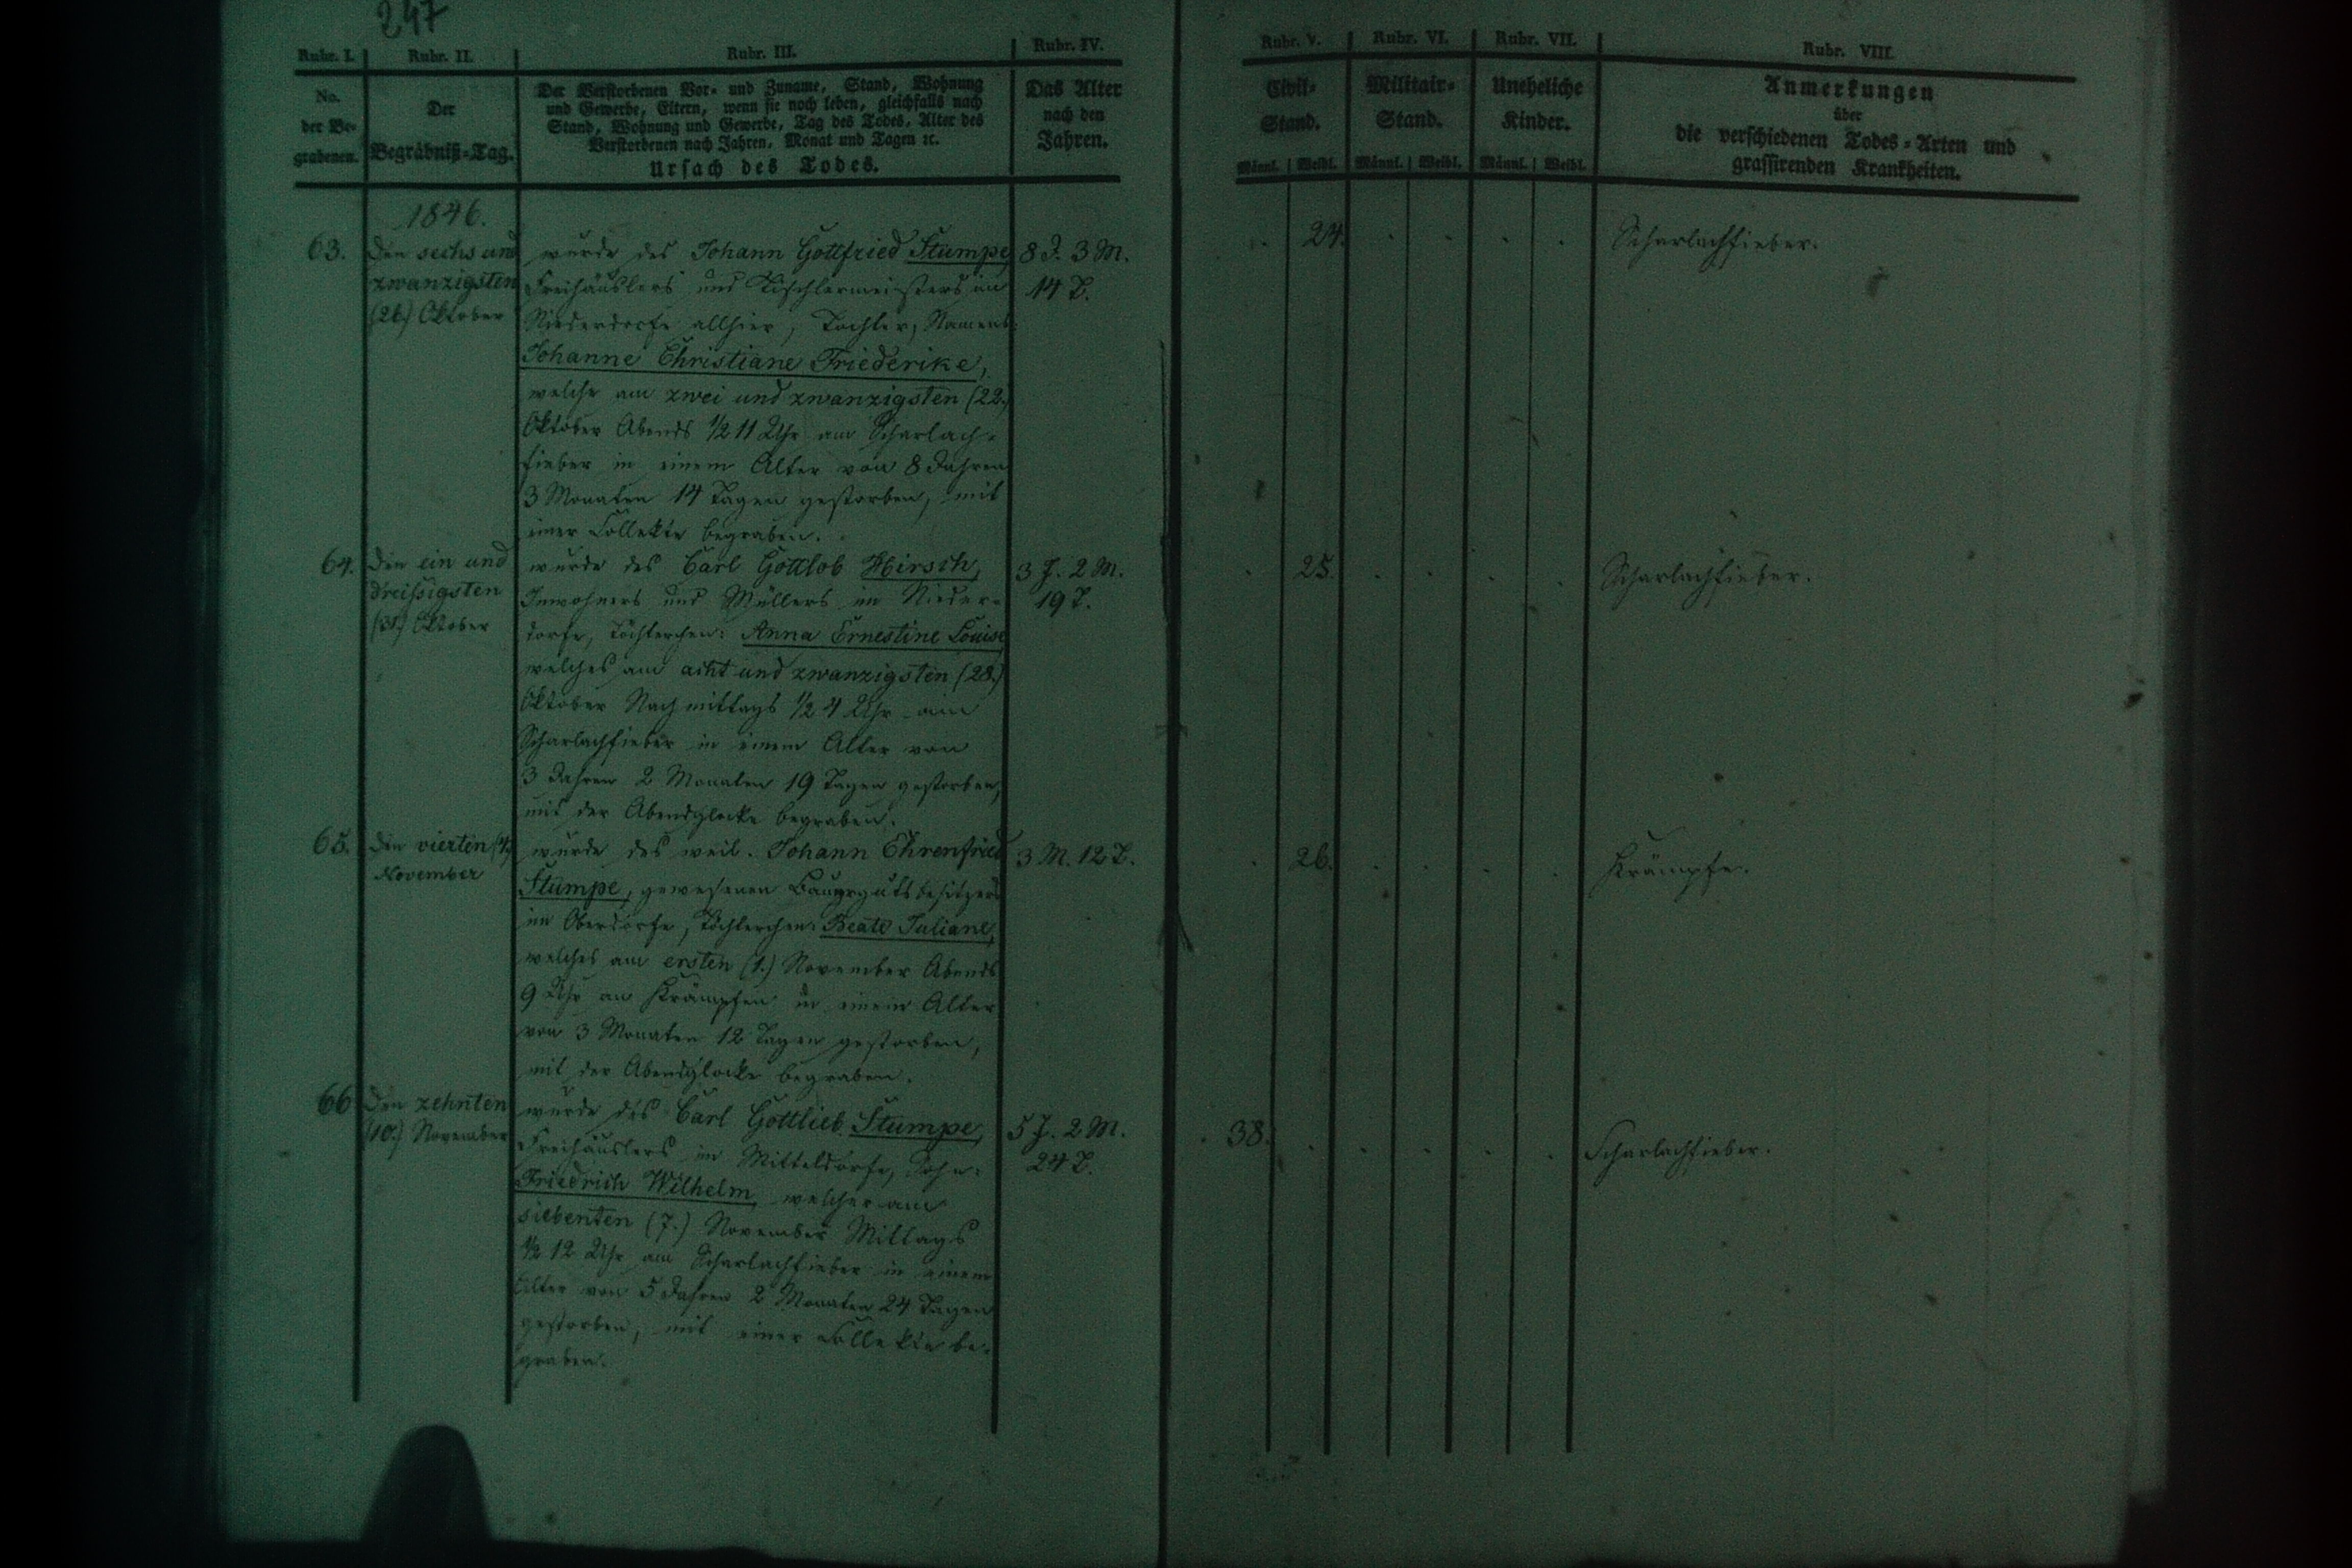 247
Rubr. I. Rubr. II. Rubr. III. Rubr. IV.
No. der Begrabenen.
Der Begräbniß-Tag.
Der Verstorbenen Vor- und Zuname, Stand, Wohnung
und Gewerbe, Eltern, wenn sie noch leben, gleichfalls nach
Stand, Wohnung und Gewerbe, Tag des Todes, Alter des
Verstorbenen nach Jahren, Monat und Tagen ꝛc.
Ursach des Todes.
Das Alter
nach den
Jahren.
1846.
63.
Den sechs und
zwanzigsten
(26.) Oktober
wurde des Johann Gottfried Stumpe,
Freihäuslers und Tischlermeisters im
Niederdorfe allhier, Tochter, Namens:
Johanne Christiane Friederike,
welche am zwei und zwanzigsten (22.)
Oktober Abends ½ 11 Uhr am Scharlach-
fieber in einem Alter von 8 Jahren
3 Monaten 14 Tagen gestorben, mit
einer Collekte begraben.
8 J. 3 M.
14 T.
64.
Den ein und
dreißigsten
(31.) Oktober
wurde des Carl Gottlob Hirsch,
Inwohners und Müllers im Nieder-
dorfe, Töchterchen: Anna Ernestine Louise
welches am acht und zwanzigsten (28.)
Oktober Nachmittags ½ 4 Uhr am
Scharlachfieber in einem Alter von
3 Jahren 2 Monaten 19 Tagen gestorben,
mit der Abendglocke begraben.
3 J. 2 M.
19 T.
65.
Den vierten (4.)
November
wurde des weil. Johann Ehrenfried
Stumpe, gewesenen Bauergutsbesitzers
im Oberdorfe, Töchterchen: Beate Juliane,
welches am ersten (1.) November Abends
9 Uhr an Krämpfen in einem Alter
von 3 Monaten 12 Tagen gestorben,
mit der Abendglocke begraben.
3 M. 12 T.
66
Den zehnten
(10.) November
wurde des Carl Gottlieb Stumpe,
Freihäuslers im Mitteldorfe, Sohn:
Friedrich Wilhelm, welcher am
siebenten (7.) November Mittags
½ 12 Uhr am Scharlachfieber in einem
Alter von 5 Jahren 2 Monaten 24 Tagen
gestorben, mit einer Collekte be-
graben.
5 J. 2 M.
24 T.
Rubr. V. Rubr. VI. Rubr. VII. Rubr. VIII.
Civil-
Stand.
Militair-
Stand.
Uneheliche
Kinder.
Anmerkungen
über
die verschiedenen Todes-Arten und
grassirenden Krankheiten.
Männl. Weibl. Männl. Weibl. Männl. Weibl.
24. Scharlachfieber.
25. Scharlachfieber.
26. Krämpfe.
38. Scharlachfieber.